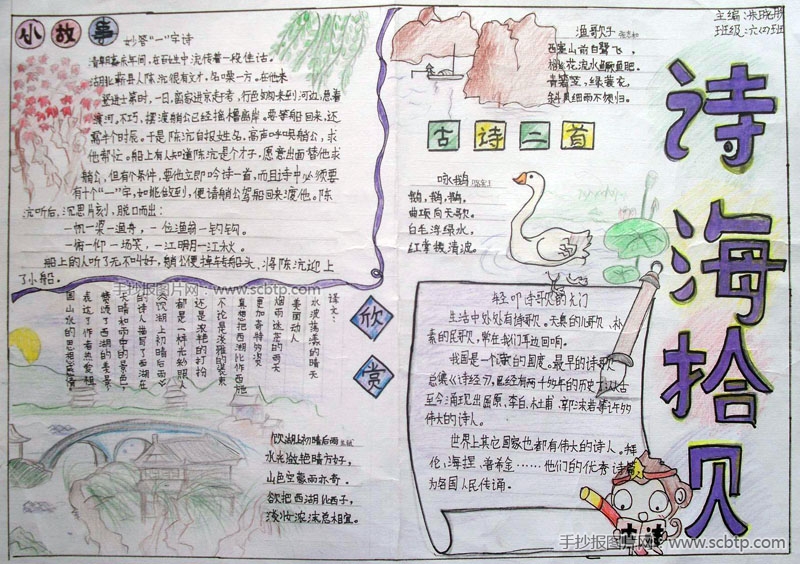 小故事
妙答“一”字诗
清朝嘉庆年间,在民生中流传着一段佳话。
湖北蕲县人陈沆很有才,名噪一方。在他未
登进士第时,一日,离家进京赶考,行色匆匆来到河边,急着
渡河。不巧,摆渡艄公已经摇橹离岸。要等船回来,还
需半个时辰。于是陈沆自报姓名,高声呼唤艄公,求
他帮忙。船上有人知道陈沆是个才子,愿意出面替他求
艄公,但有个条件,要他立即吟诗一首,而且诗中必须要
有十个“一”字,如能做到,便请艄公驾船回来渡他。陈
沆听后,沉思片刻,脱口而出:
一帆一桨一渔舟,一位渔翁一钓钩。
一俯一仰一场笑,一江明月一江秋。
船上的人听了无不叫好,艄公便掉转船头,将陈沆迎上
了小船。
渔歌子 张志和
西塞山前白鹭飞,
桃花流水鳜鱼肥。
青箬笠,绿蓑衣,
斜风细雨不须归。
主编:朱晓彤
班级:六(4)班
诗海拾贝
古诗二首
咏鹅
鹅,鹅,鹅,
曲项向天歌。
白毛浮绿水,
红掌拨清波。
欣赏
译文:
水波荡漾的晴天
美丽动人
烟雨迷茫的雨天
更加奇特的姿
真想把西湖比作西施
不论是淡雅的装束
还是浓艳的打扮
都是一样光彩照人
《饮湖上初晴后雨》
的诗人描写了西湖在
天晴和雨中的景色,
赞颂了西湖的美景
表达了作者热爱祖
国山水的思想感情
饮湖上初晴后雨
水光潋滟晴方好,
山色空蒙雨亦奇。
欲把西湖比西子,
淡妆浓抹总相宜。
轻叩诗歌的大门
生活中处处有诗歌。天真的儿歌,朴
素的民歌,常在我们耳边回响。
我国是一个诗的国度。最早的诗歌
总集《诗经》,已经有两千多年的历史了。从古
至今涌现出屈原、李白、杜甫、郭沫若等许多的
伟大的诗人。
世界上其它国家也都有伟大的诗人。拜
伦、海涅、普希金……他们的优秀诗篇
为各国人民传诵。
古诗
手抄报图片网 - www.scbtp.com
手抄报图片网 - www.scbtp.com